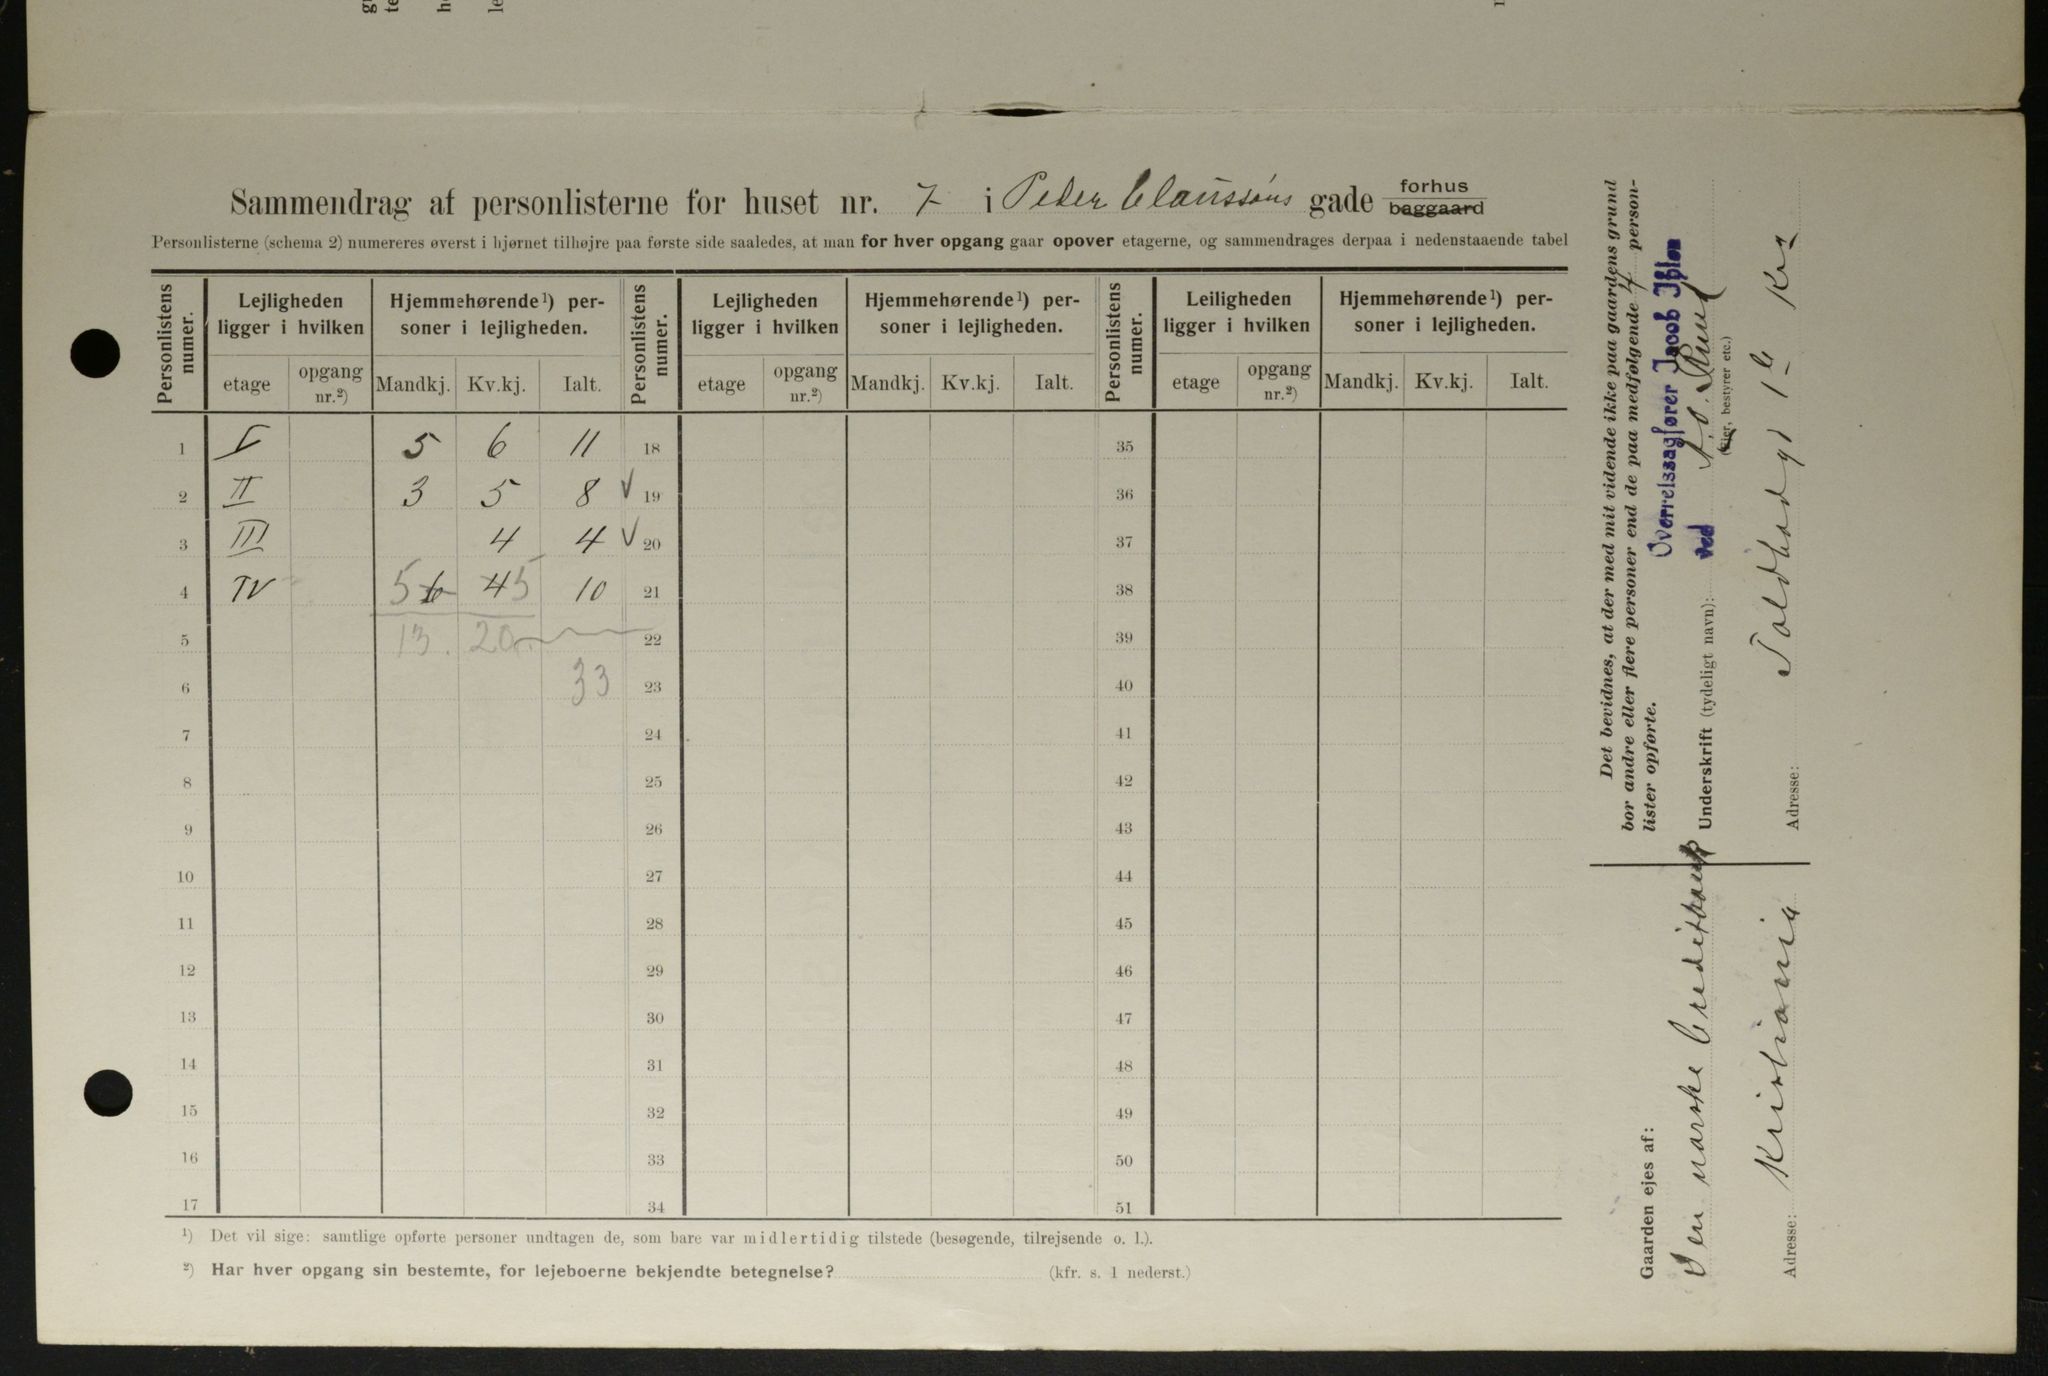 Sammendrag af personlisterne for huset nr. 7 i Peter Claussøns gade forhus baggaard
Personlisterne (schema 2) numereres øverst i hjørnet tilhøjre paa første side saaledes, at man for hver opgang gaar opover etagerne, og sammendrages derpaa i nedenstaaende tabel
Personlistens numer. Lejligheden ligger i hvilken Hjemmehørende¹) personer i lejligheden. Personlistens numer. Lejligheden ligger i hvilken Hjemmehørende¹) personer i lejligheden. Personlistens numer. Leiligheden ligger i hvilken Hjemmehørende¹) personer i lejligheden.
etage opgang nr.²) Mandkj. Kv.kj. Ialt. etage opgang nr.²) Mandkj. Kv.kj. Ialt. etage opgang nr.²) Mandkj. Kv.kj. Ialt.
1 I 5 6 11 18 35
2 II 3 5 8 √ 19 36
3 III 4 4 √ 20 37
4 IV 5 6 4 5 10 21 38
5 13. 20. 22 39
6 33 23 40
7 24 41
8 25 42
9 26 43
10 27 44
11 28 45
12 29 46
13 30 47
14 31 48
15 32 49
16 33 50
17 34 51
¹) Det vil sige: samtlige opførte personer undtagen de, som bare var midlertidig tilstede (besøgende, tilrejsende o. l.).
²) Har hver opgang sin bestemte, for lejeboerne bekjendte betegnelse? (kfr. s. 1 nederst.)
Det bevidnes, at der med mit vidende ikke paa gaardens grund
bor andre eller flere personer end de paa medfølgende 4 person-
lister opførte.
Overretssagfører Jacob Ihlen
Underskrift (tydeligt navn): ved
(Eier, bestyrer etc.)
Adresse: Toldbodgt 1 b Kra
Gaarden ejes af:
Den norske Creditbank
Adresse: Kristiania